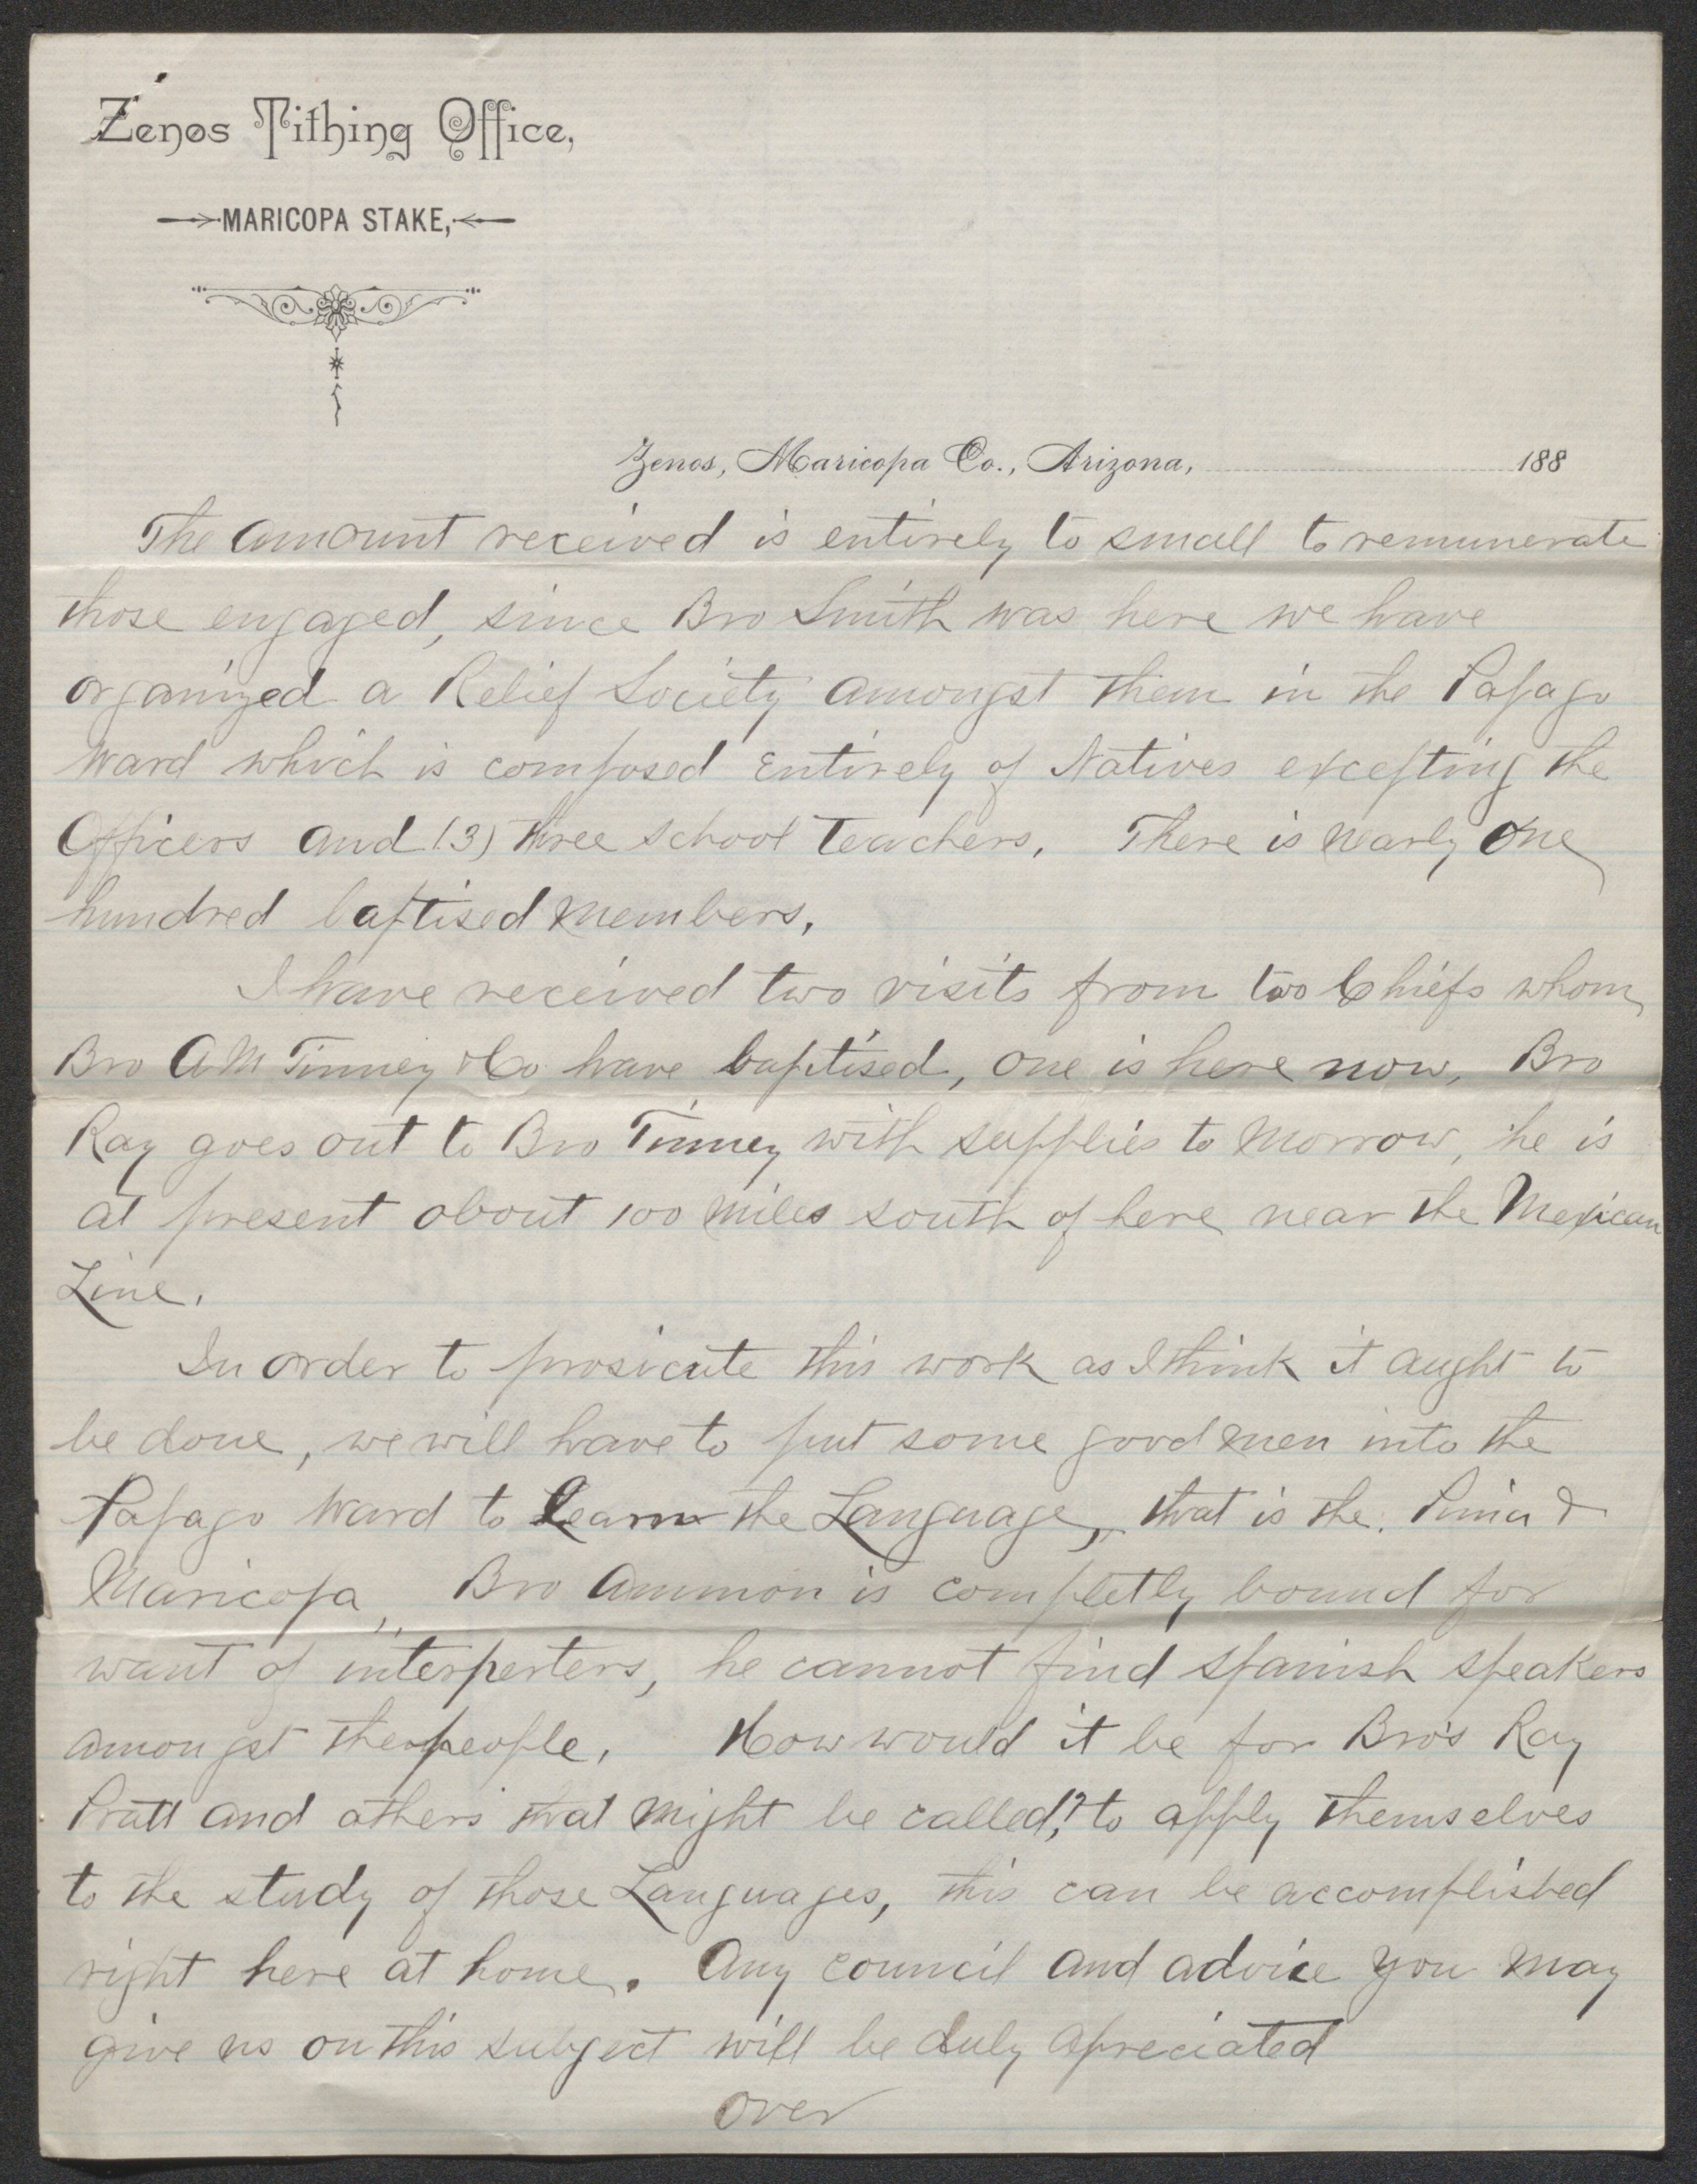 Zenos Tithing Office,
MARICOPA STAKE,
Zenos, Maricopa Co., Arizona, 188
The amount received is entirely to small to remunerate
those engaged, since Bro Smith was here we have
organized a Relief Society amongst them in the Papago
Ward which is composed Entirely of Natives excepting the
Officers and (3) three school teachers, There is nearly one
hundred baptised members,
I have received two visits from two Chiefs whom
Bro A M Tinney & Co have baptised, one is here now, Bro
Ray goes out to Bro Tinney with supplies to morrow, he is
at present about 100 miles south of here near the Mexican
Line,
In order to prosicute this work as I think it aught to
be done, we will have to put some good men into the
Papago Ward to Learn the Language, that is the Pima &
Maricopa, Bro Ammon is completly bound for
want of interperters, he cannot find spanish speakers
amongst the people, How would it be for Bro's Ray
Pratt and others that might be called,? to apply themselves
to the study of those Languages, this can be accomplished
right here at home. Any council and advice you may
give us on this subject will be duly apreciated
over